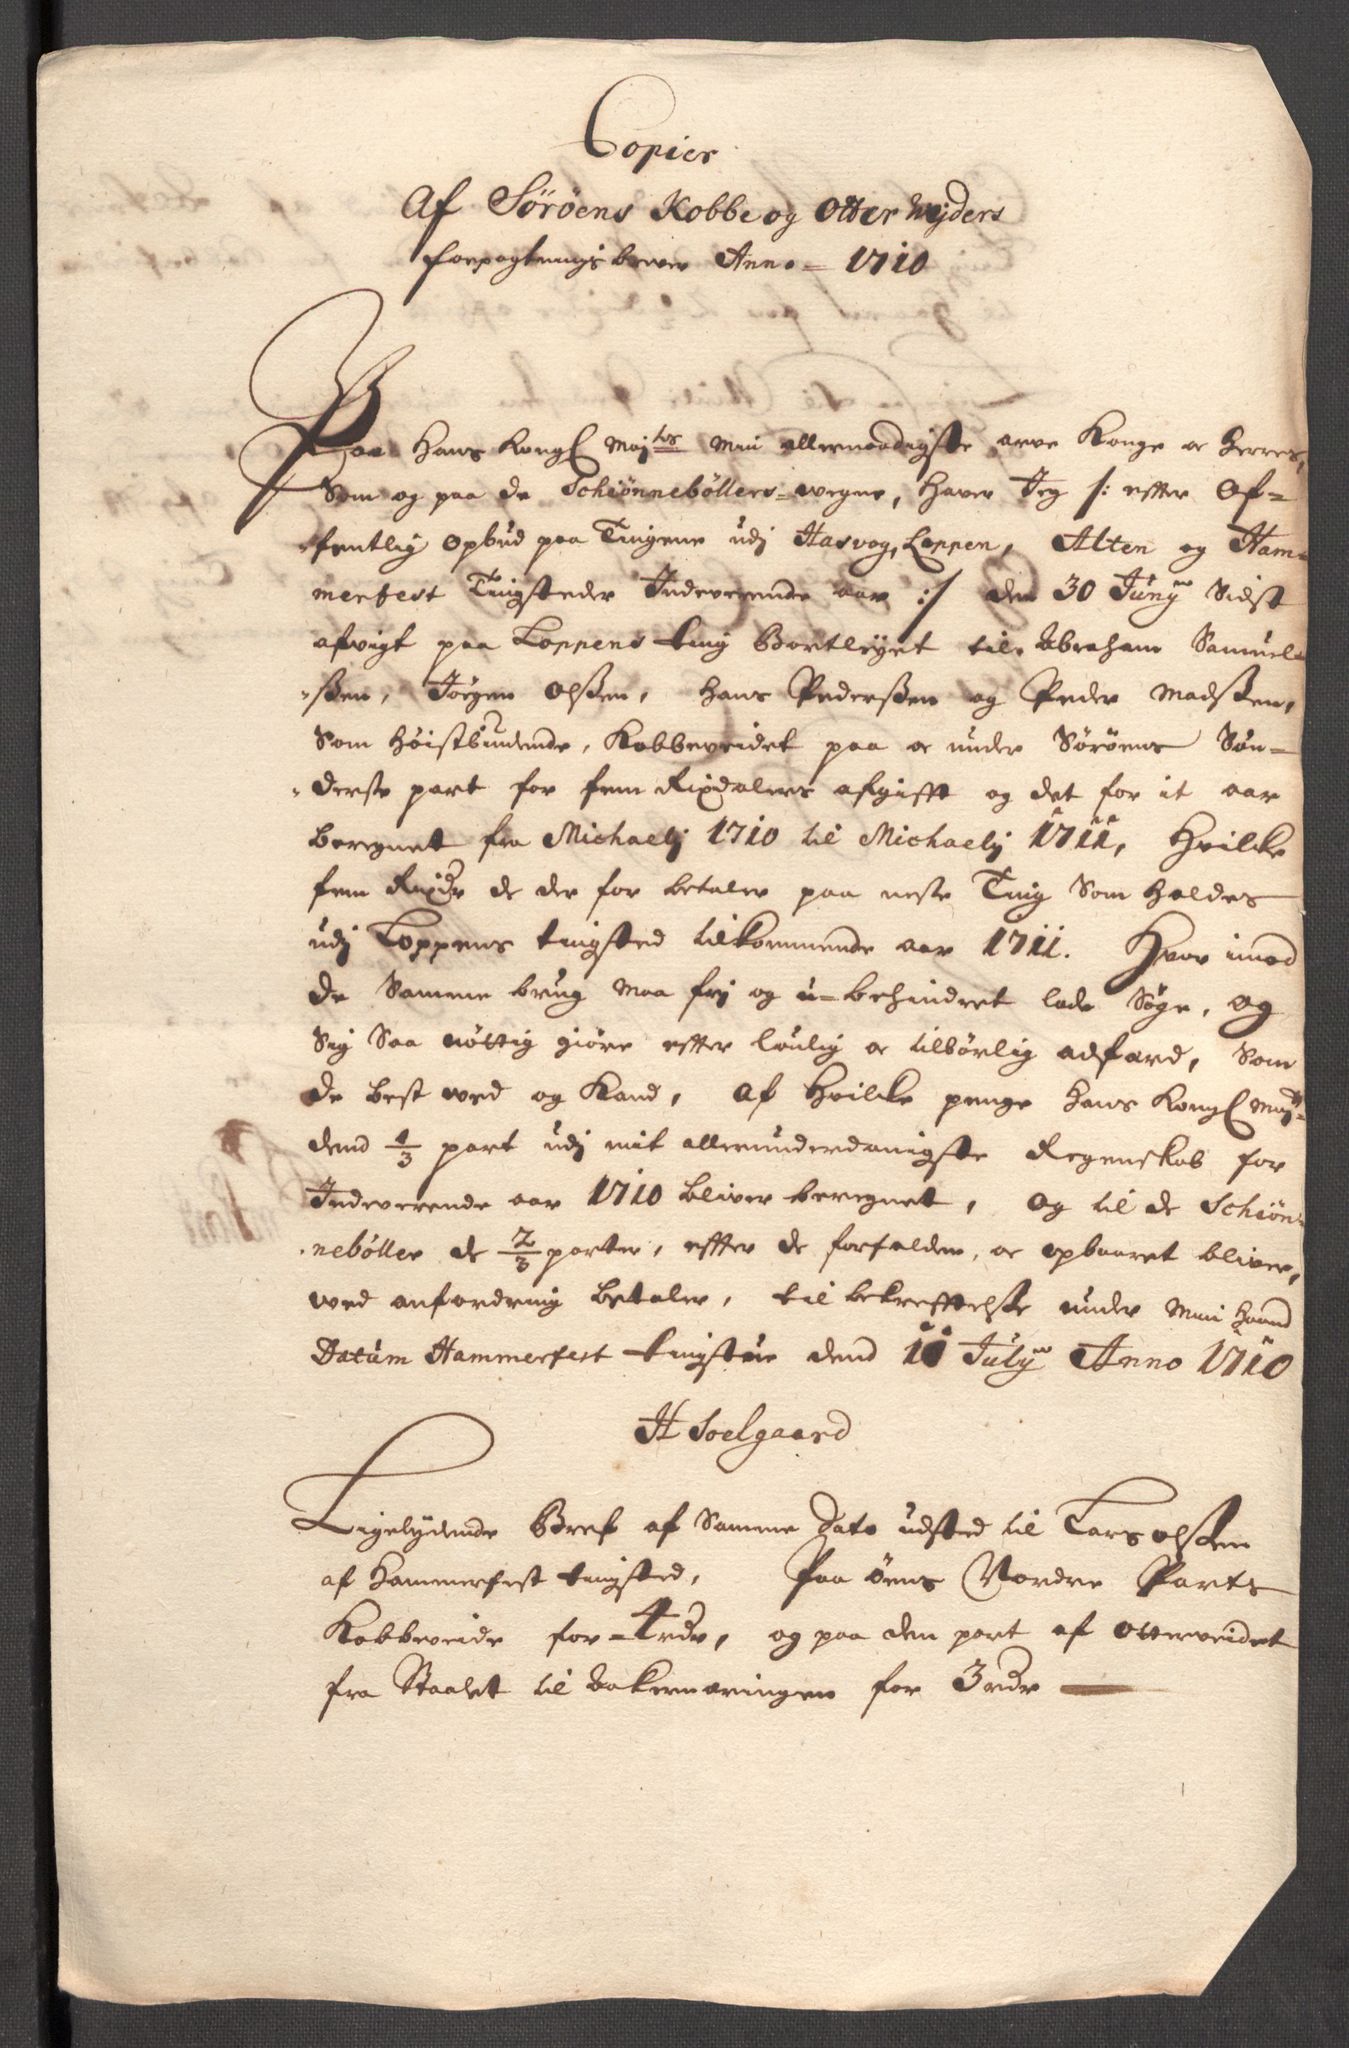 Copier
Af Söröens Kobbe og Otter Weÿders
forpagtnings brever Anno 1710
Paa Hans Kongl Maj:ts min allernaadigste arve Konge oc Herres,
Som og paa de Schiönnebøllers wegne, haver Jeg /: efter Of-
fentlig Opbud paa Tingene udj Hasvog, Loppen, Alten og Ham-
merfest Tingsteder Indeverende aar :/ den 30 Junÿ Sidst
afvigt paa Loppens ting Bortleÿet til Abraham Samuel-
ßen, Jörgen Olßen, Hans Pederßen og Peder Madßen,
Som Høistbiudende, Kobbeveidet paa oc under Sörøens Sön-
derste part for fem Rixdalers afgifft og det for it aar
beregnet fra Michaelj 1710 til Michaelj 1711, Hvilcke
fem Rixdr de der for betaler paa neste Ting Som Holdes
udj Loppens tingsted tilkommende aar 1711. Hvor imod
de Samme brug maa frj og u-behindret lade Søge, og
Sig Saa nöttig giöre efter lovlig oc tilbörlig adfærd, Som
de best ved og Kand, Af Hvilcke penge Hans Kongl Maj:tt
dend 1/3 part udj mit allerunderdanigste Regenskab for
Indeverende aar 1710 bliver beregnet, og til de Schiön-
nebøller de 2/3 parter, effter de forfalden, oc opbaaret bliver,
ved anfordring betaler, til bekreftelse under min Haand
Datum Hammerfest tingstue dend 11 Julÿ Anno 1710
H Soelgaard
Ligelydende Bref af Samme Dato udsted til Lars olßen
af Hammerfest tingsted, Paa öens Nordre Parts
Kobbeveide for 4 rdr, og paa den part af Otterveidet
fra Staalet til for 3 rdr